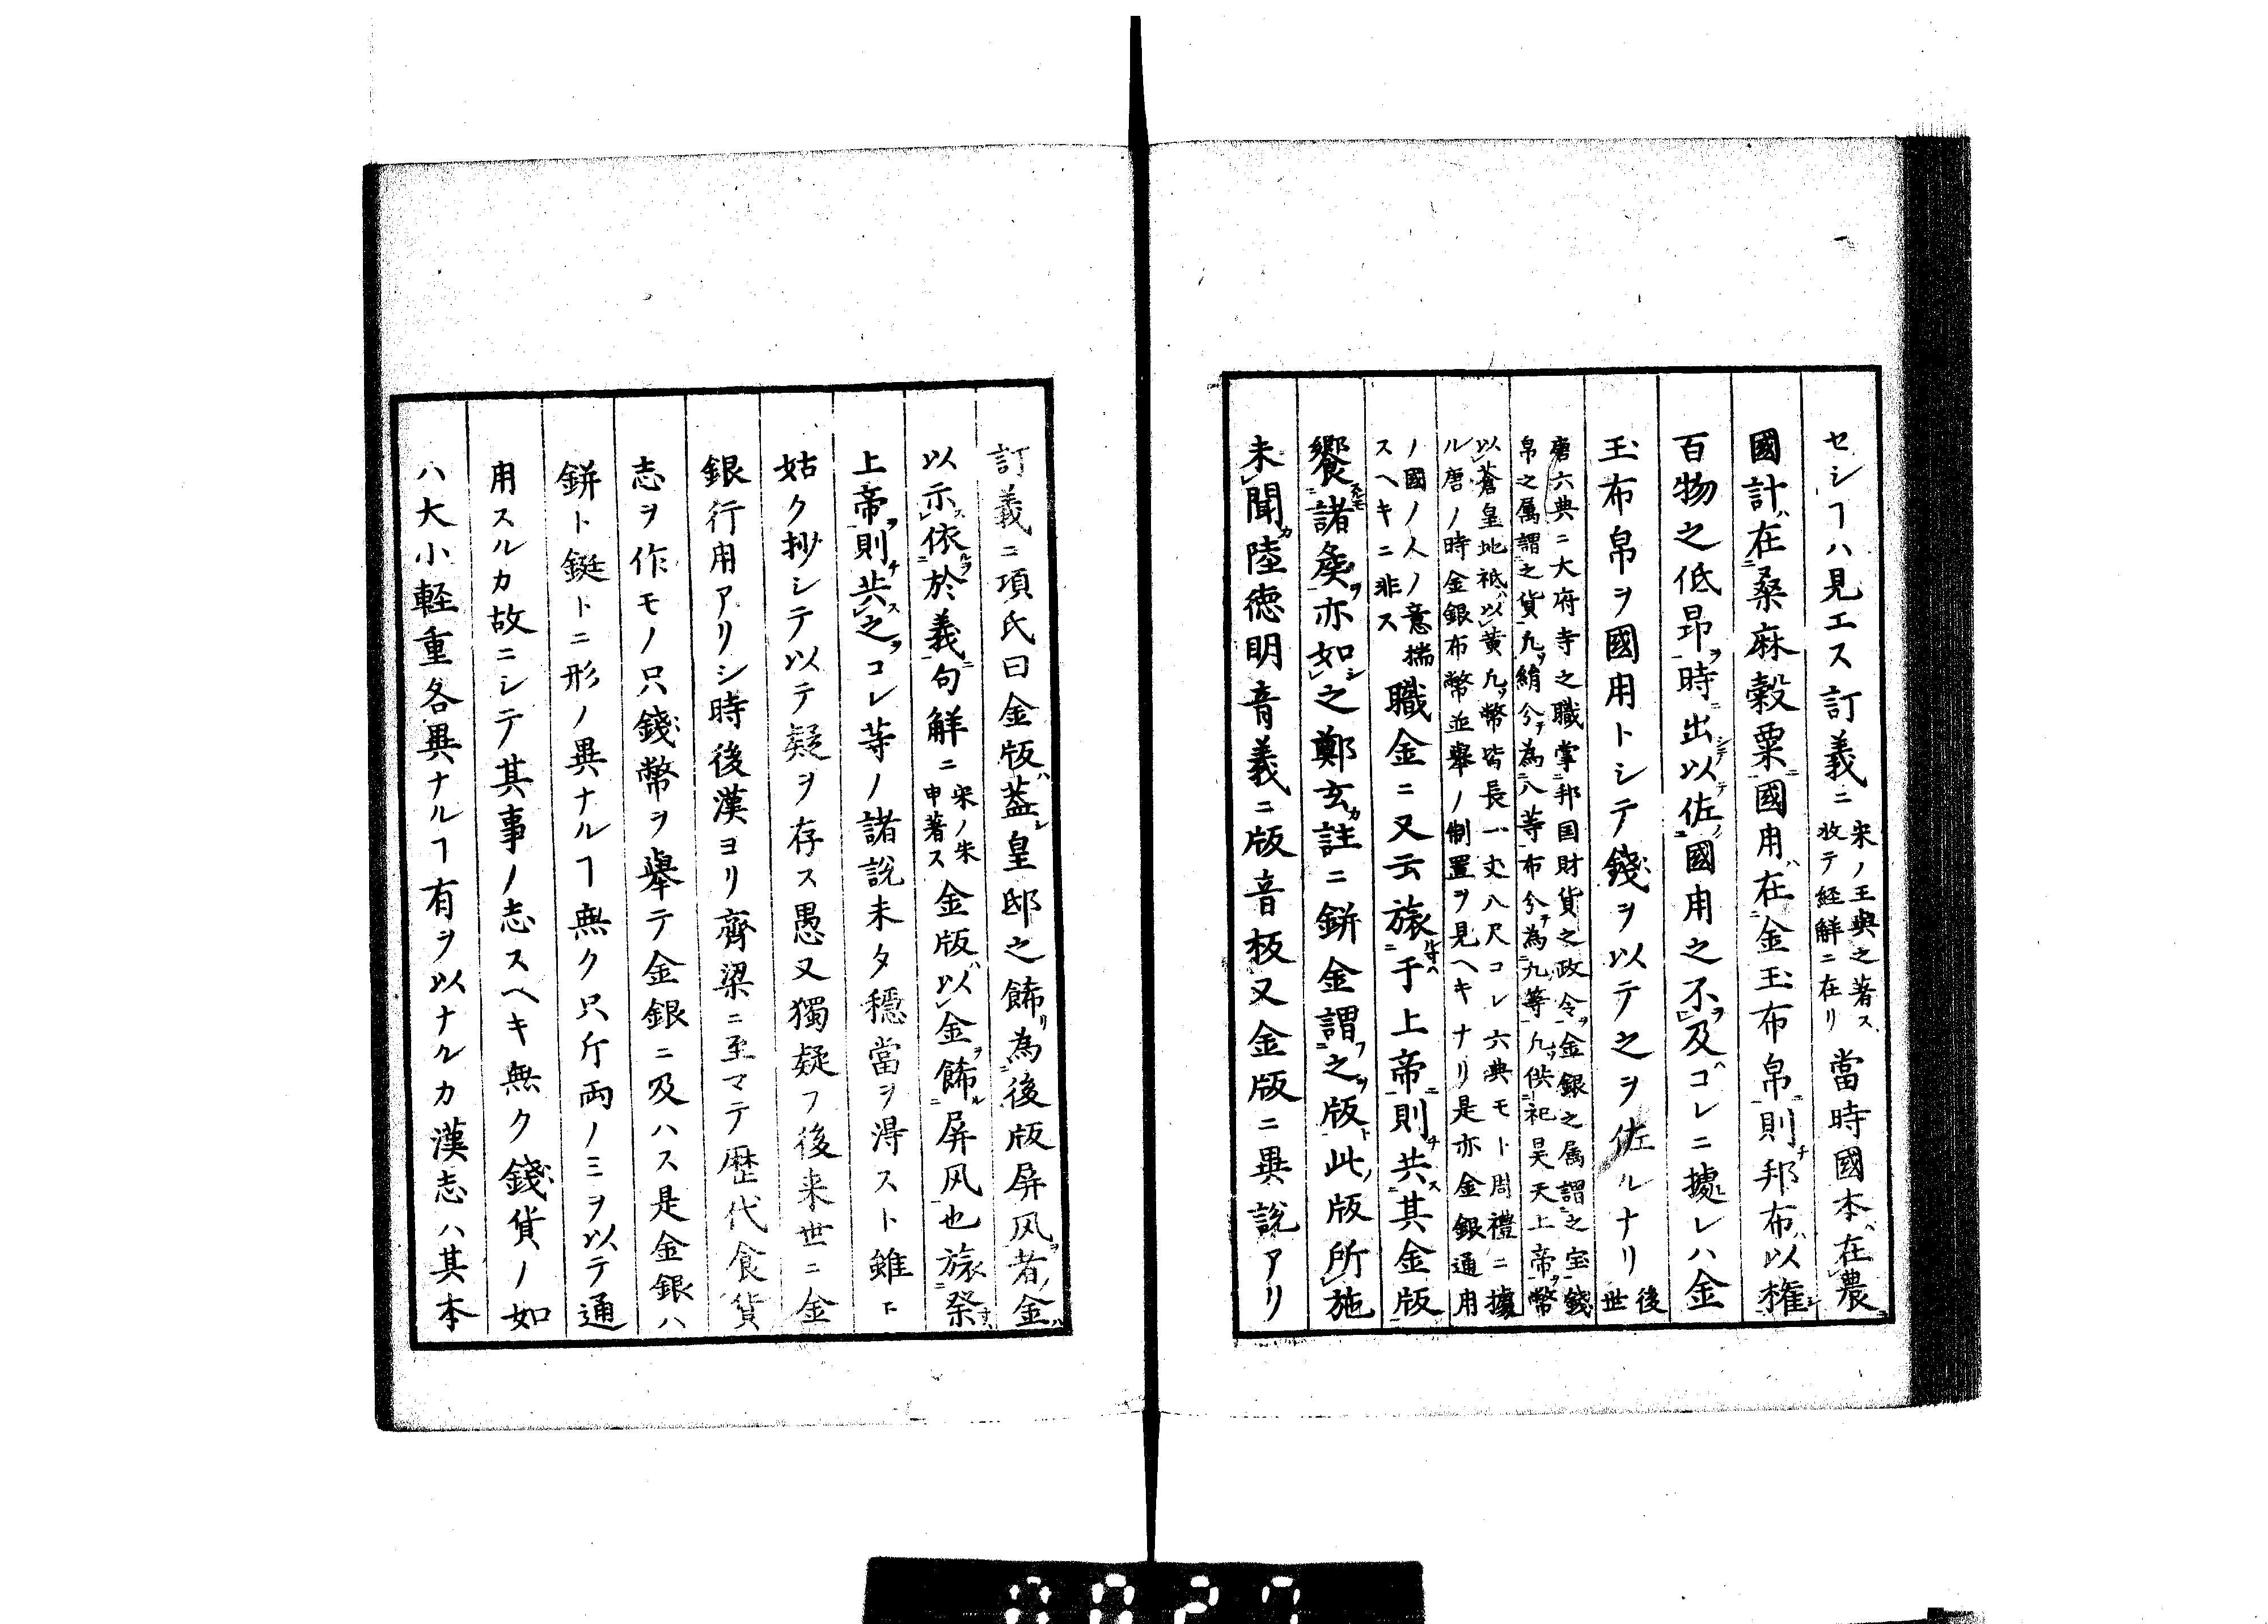 セシヿハ見エス訂義ニ宋ノ王與之著ス攷テ経解ニ在リ當時國本ハ在農
國計ハ在桑麻穀粟國用ハ在金玉布帛則邦布以権
百物之低昂時出以佐國用之不及コレニ據レハ金
玉布帛ヲ國用トシテ錢ヲ以テ之ヲ佐ルナリ後世
唐六典ニ大府寺之職掌邦国財貨之政令金銀之属謂之宝錢
帛之属謂之貨凡絹分為八等布分為九等凡供祀昊天上帝幣
以蒼皇地祗以黄凡幣皆長一丈八尺コレ六典モト周禮ニ據
ル唐ノ時金銀布幣並舉ノ制置ヲ見ヘキナリ是亦金銀通用
ノ國ノ人ノ意揣
スヘキニ非ス
職金ニ又云旅于上帝則共其金版
饗諸矦亦如之鄭玄註ニ鉼金謂之版此版所施
未聞陸徳明音義ニ版音板又金版ニ異説アリ
訂義ニ項氏曰金版葢皇邸之飾為後版屏风者金
以示依於義句解ニ宋ノ朱申著ス金版以金飾屏风也旅祭
上帝則共之コレ等ノ諸説未タ穏當ヲ得スト雖ト
姑ク抄シテ以テ疑ヲ存ス愚又獨疑フ後来世ニ金
銀行用アリシ時後漢ヨリ齊梁ニ至マテ歴代食貨
志ヲ作モノ只錢幣ヲ舉テ金銀ニ及ハス是金銀ハ
鉼ト鋌トニ形ノ異ナルヿ無ク只斤両ノミヲ以テ通
用スルカ故ニシテ其事ノ志スヘキ無ク錢貨ノ如
ハ大小軽重各異ナルヿ有ヲ以ナルカ漢志ハ其本